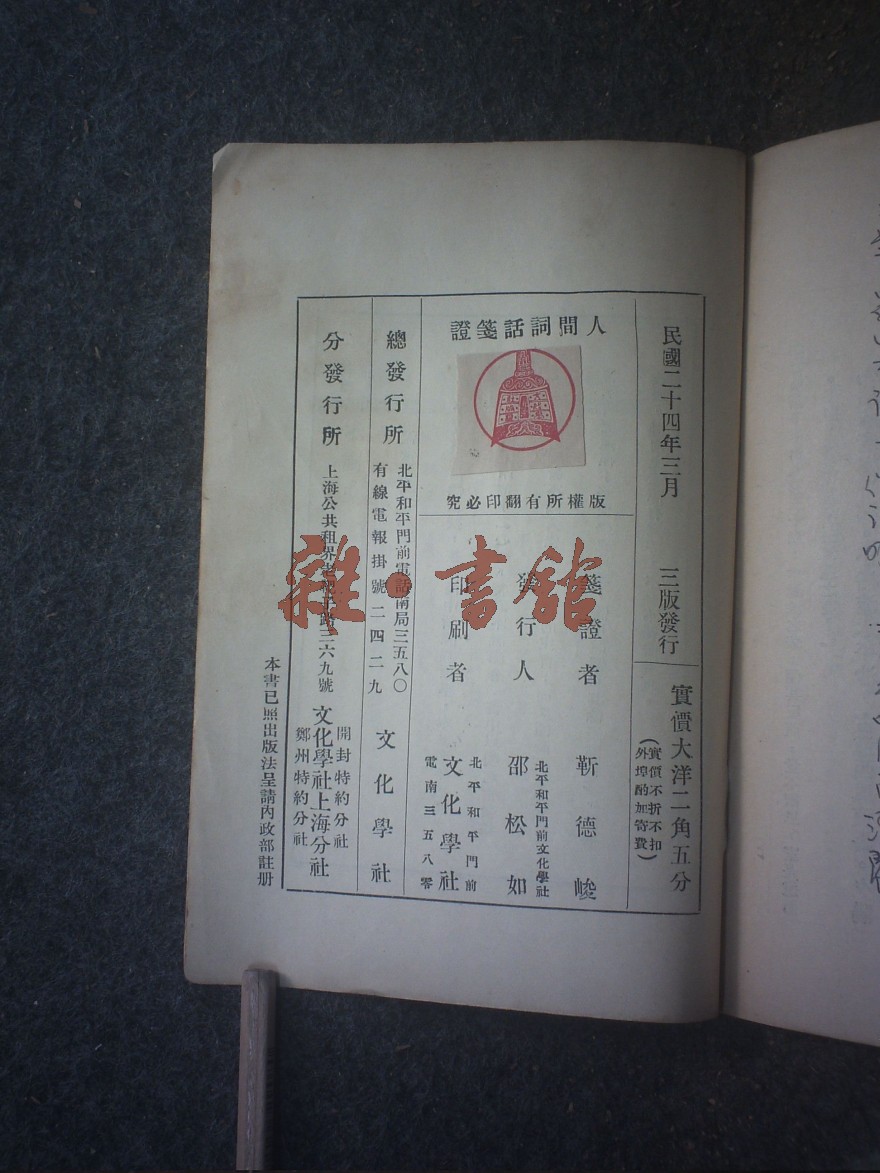 民國二十四年三月
三版發行
實價大洋二角五分
（實價不折不扣
外埠酌加寄費）
人間詞話箋證
版權所有翻印必究
箋證者
靳德峻
發行人
北平和平門前文化學社
邵松如
印刷者
北平和平門前
文化學社
電南三五八零
總發行所
北平和平門前電話南局三五八〇
有線電報掛號二四二九
文化學社
分發行所
上海公共租界
路二六九號
開封特約分社
文化學社上海分社
鄭州特約分社
本書已照出版法呈請內政部註册
雜·書館